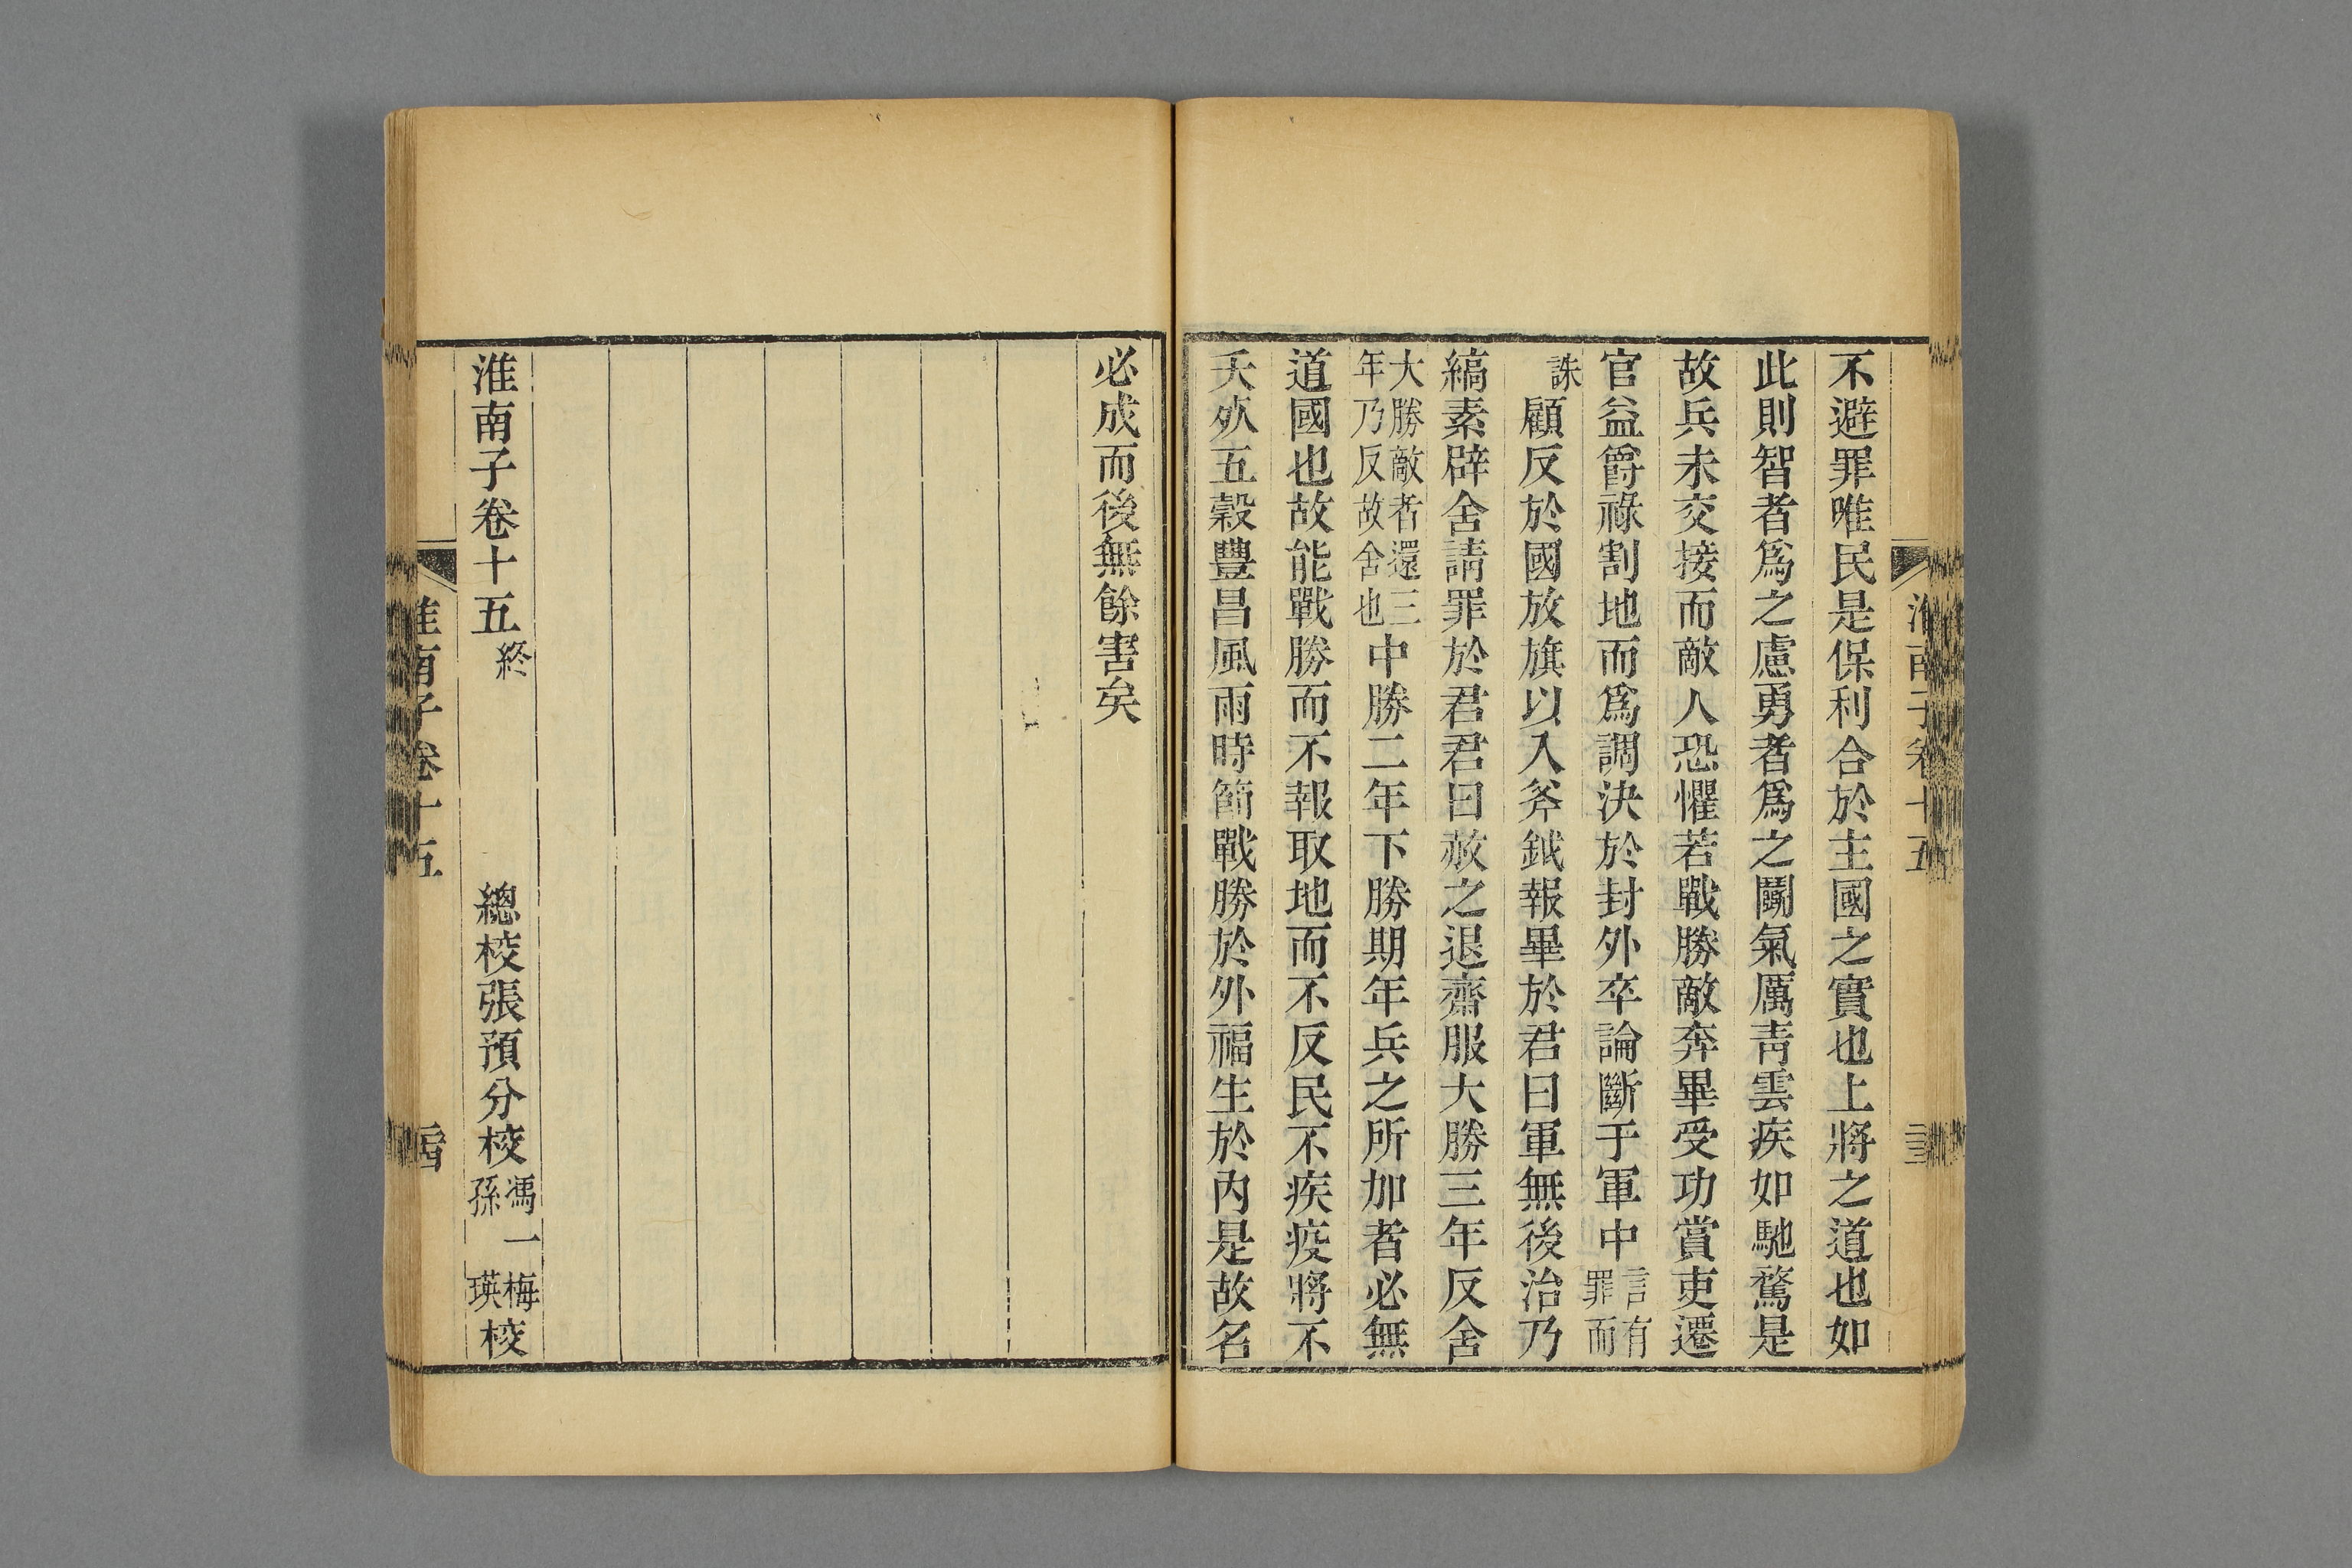 不避罪唯民是保利合於主國之實也上將之道也如
此則智者爲之慮勇者爲之鬭氣厲靑雲疾如馳騖是
故兵未交接而敵人恐懼若戰勝敵奔畢受功賞吏遷
官益爵祿割地而爲調決於封外卒論斷于軍中言有罪而
誅顧反於國放旗以入斧鉞報畢於君曰軍無後治乃
縞素辟舍請罪於君君曰赦之退齋服大勝三年反舍
大勝敵者還三年乃反故舍也中勝二年下勝期年兵之所加者必無
道國也故能戰勝而不報取地而不反民不疾疫將不
夭死五穀豐昌風雨時節戰勝於外福生於內是故名
必成而後無餘害矣
淮南子卷十五終
總校張預分校馮一梅孫瑛校
淮南子卷十五